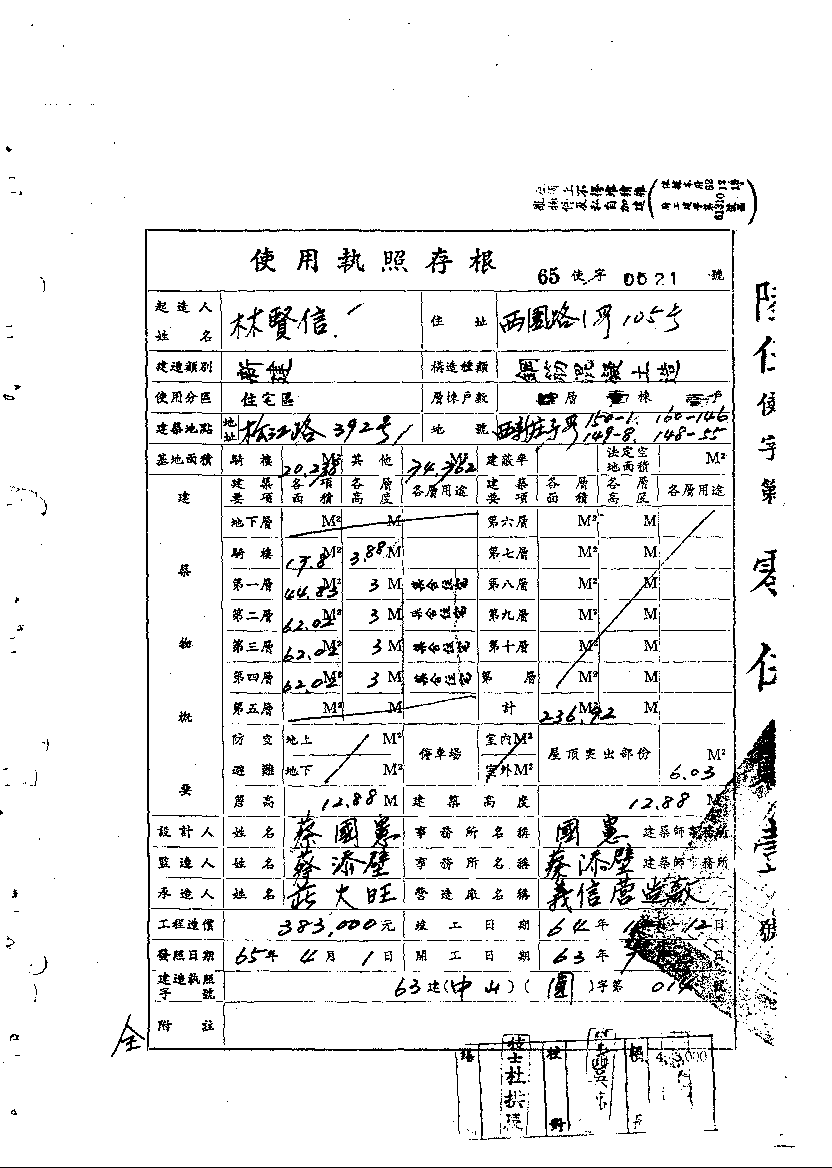 使用執照存根
65 使字 0521 號
起造人姓名 林賢信 住址 西園路1 105号
建造類別 新建 構造種類 鋼筋混凝土造
使用分區 住宅區 層棟戶數 層 棟
建築地點 地址 松江路392号 地號 西新庄子 150-1. 160-146
149-8. 148-55
基地面積 騎樓 M² 其他 34.362 M² 建蔽率 法定空地面積 M²
建築物概要
建築要項 各項面積 各層高度 各層用途 建築要項 各層面積 各層高度 各層用途
地下層 M² M 第六層 M² M
騎樓 17.8 M² 3.88 M 第七層 M² M
第一層 44.83 M² 3 M 第八層 M² M
第二層 M² 3 M 第九層 M² M
第三層 M² 3 M 第十層 M² M
第四層 M² 3 M 第 層 M² M
第五層 M² M 計 236.92 M² M
防空避難 地上 M² 停車場 室內 M² 屋頂突出部份 M²
地下 M² 室外 M² 6.03
簷高 12.88 M 建築高度 12.88 M
設計人 姓名 蔡國憲 事務所名稱 國憲 建築師事務所
監造人 姓名 蔡添壁 事務所名稱 蔡添壁 建築師事務所
承造人 姓名 火旺 營造廠名稱 義信营造廠
工程造價 383,000 元 竣工日期 64年 12日
發照日期 65年 4月 1日 開工日期 63年 日
建造執照字號 63建(中山)(園)字第 號
附註
使字第零
號